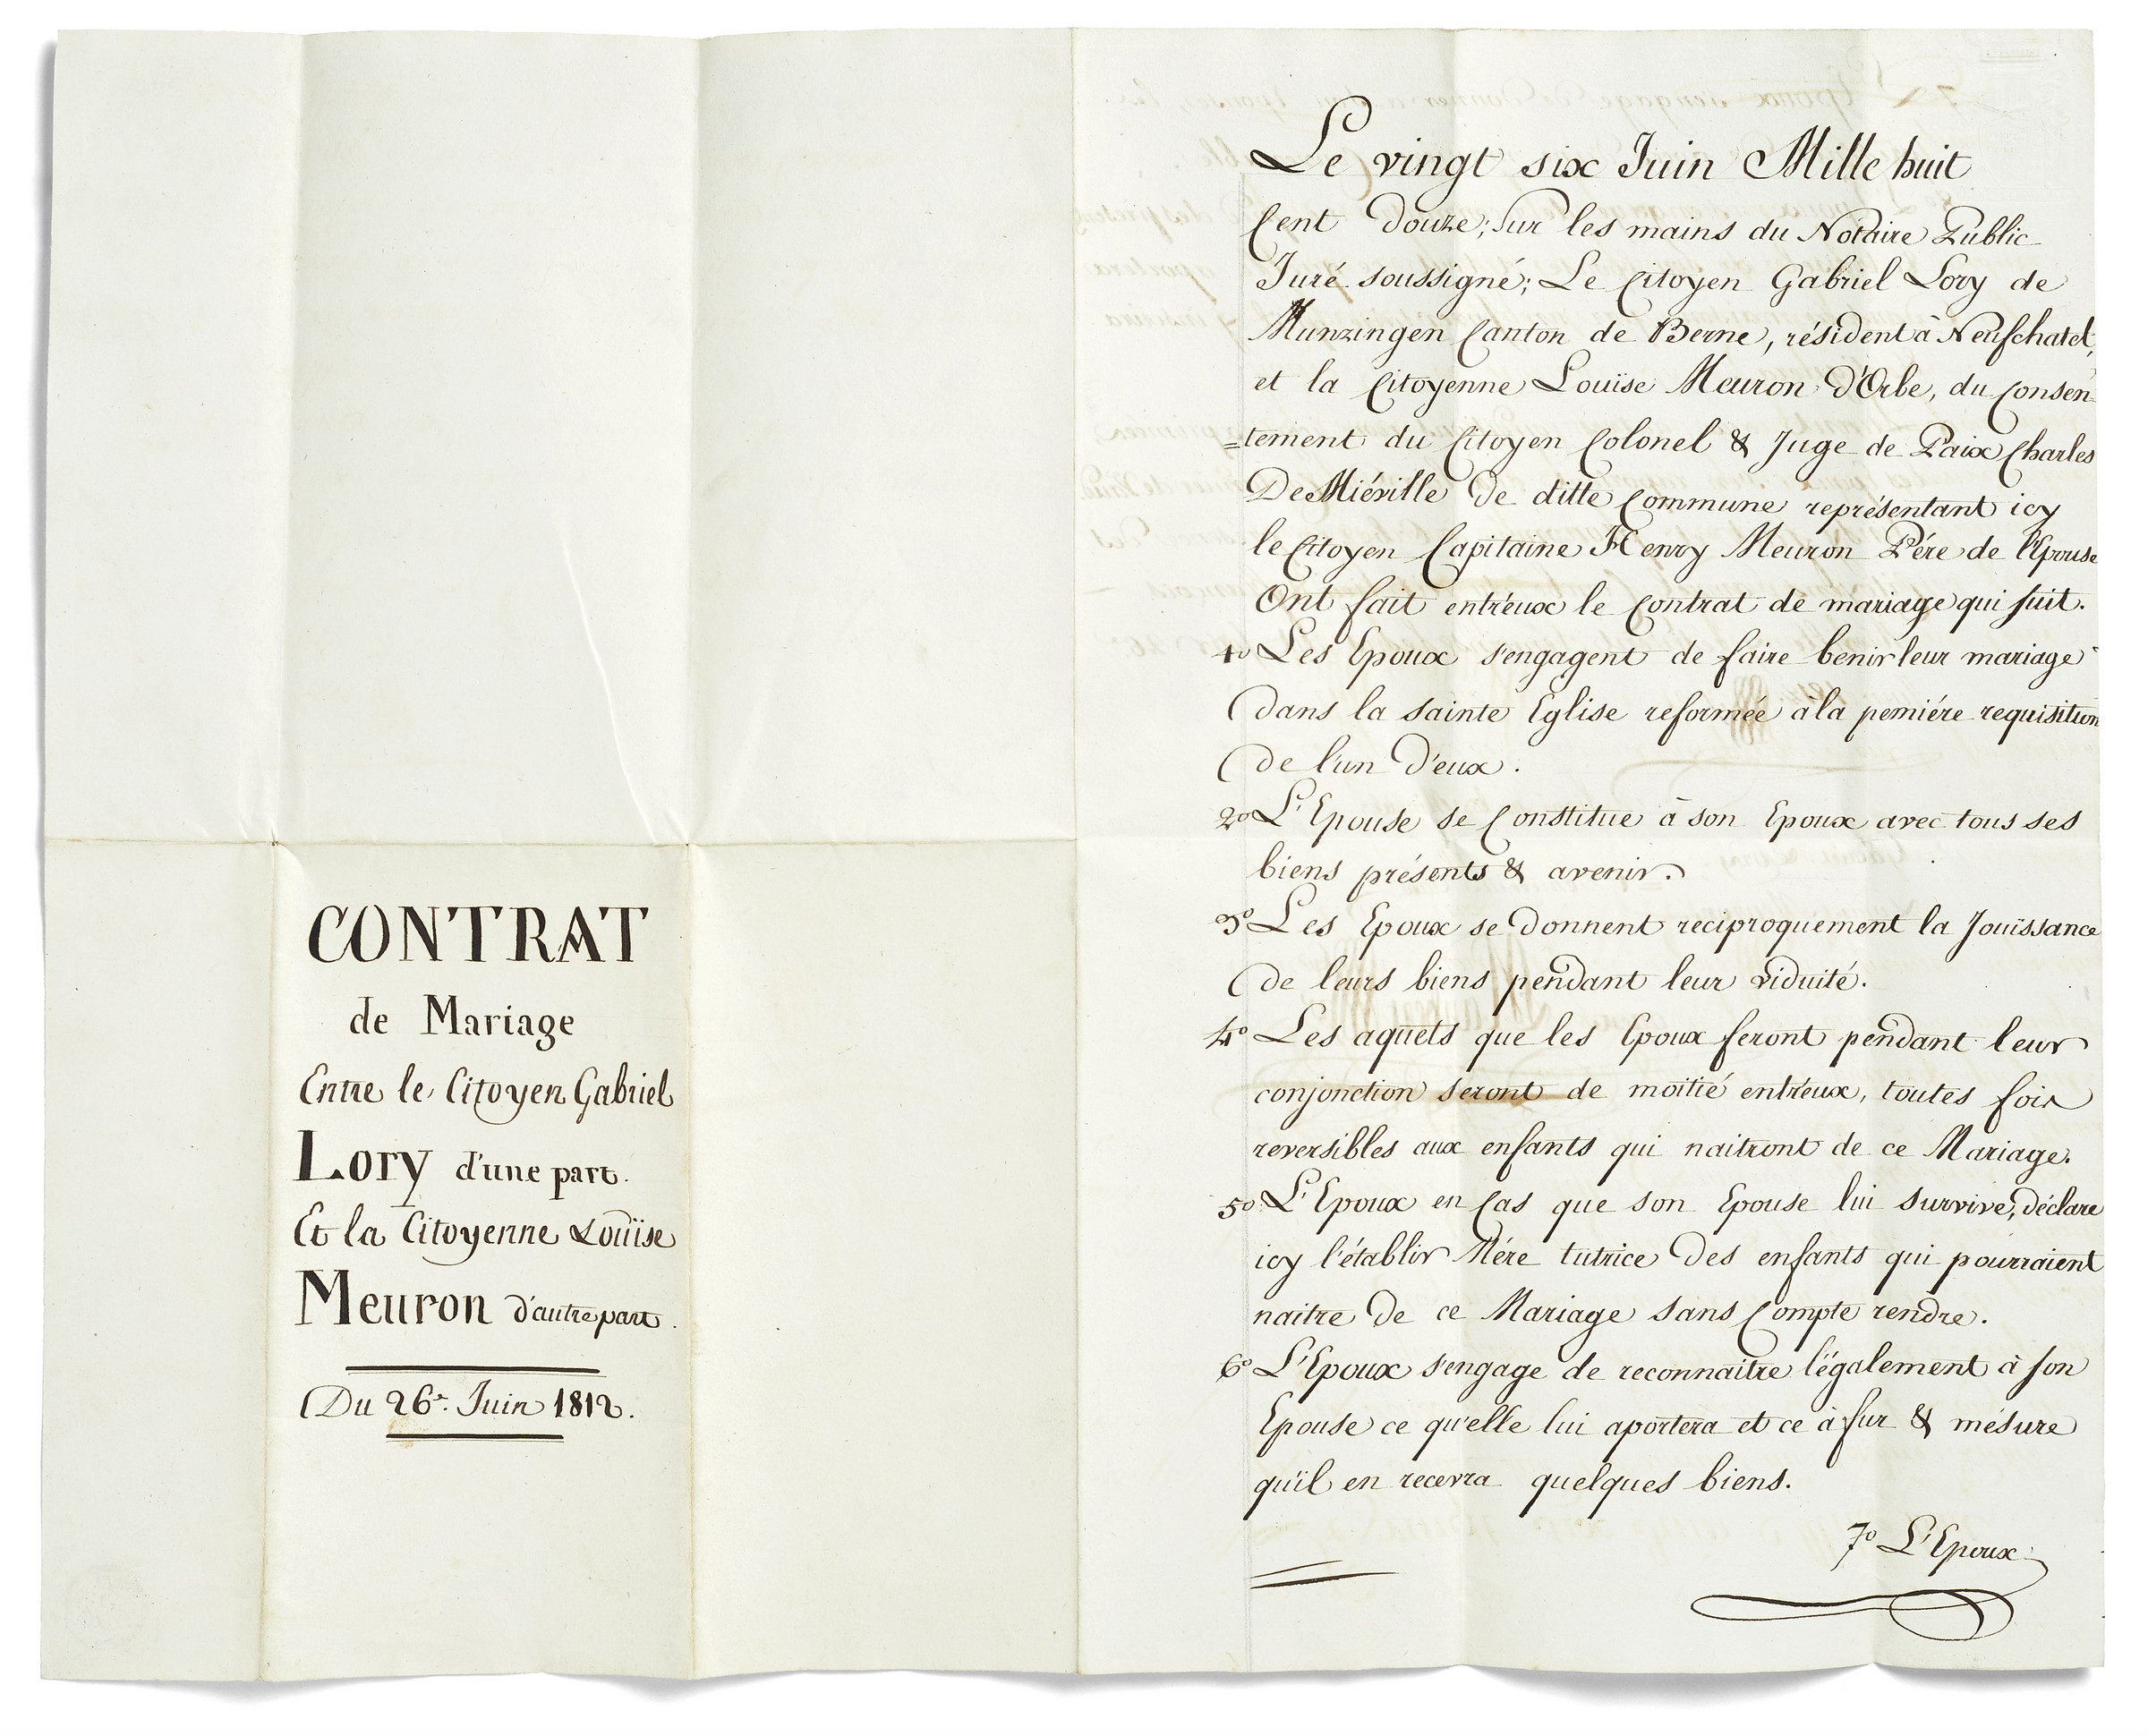 CONTRAT
de Mariage
Entre le Citoyen Gabriel
Lory d'une part.
Et la Citoyenne Louïse
Meuron d'autre part.
Du 26e. Juin 1812.
Le vingt six Juin Mille huit
Cent Douze; Sur les mains du Notaire Public
Juré soussigné; Le Citoyen Gabriel Lory de
Munzingen Canton de Berne, résident à Neufchatel,
et la Citoyenne Louïse Meuron d'Orbe, du Consen
=tement du Citoyen Colonel & Juge de Paix Charles
De Miéville de ditte Commune représentant icy
le Citoyen Capitaine Henry Meuron Pére de l'Epouse
Ont fait entr'eux le Contrat de mariage qui suit.
1o Les Epoux s'engagent de faire benir leur mariage
Dans la sainte Eglise reformée à la pemiére requisition
De l'un d'eux.
2o L'Epouse se Constitue à son Epoux avec tous ses
biens présents & avenir.
3o Les Epoux se Donnent reciproquement la Jouïssance
De leurs biens pendant leur viduité.
4o Les aquets que les Epoux feront pendant leur
conjonction seront de moitié entr'eux, toutes fois
reversibles aux enfants qui naitront de ce Mariage.
5o L'Epoux en Cas que son Epouse lui survive, déclare
icy l'établir Mére tutrice Des enfants qui pourraient
naitre De ce Mariage sans Compte rendre.
6o L'Epoux s'engage de reconnaitre légalement à son
Epouse ce qu'elle lui aportera et ce à fur & mésure
qu'il en recevra quelques biens.
7o L'Epoux